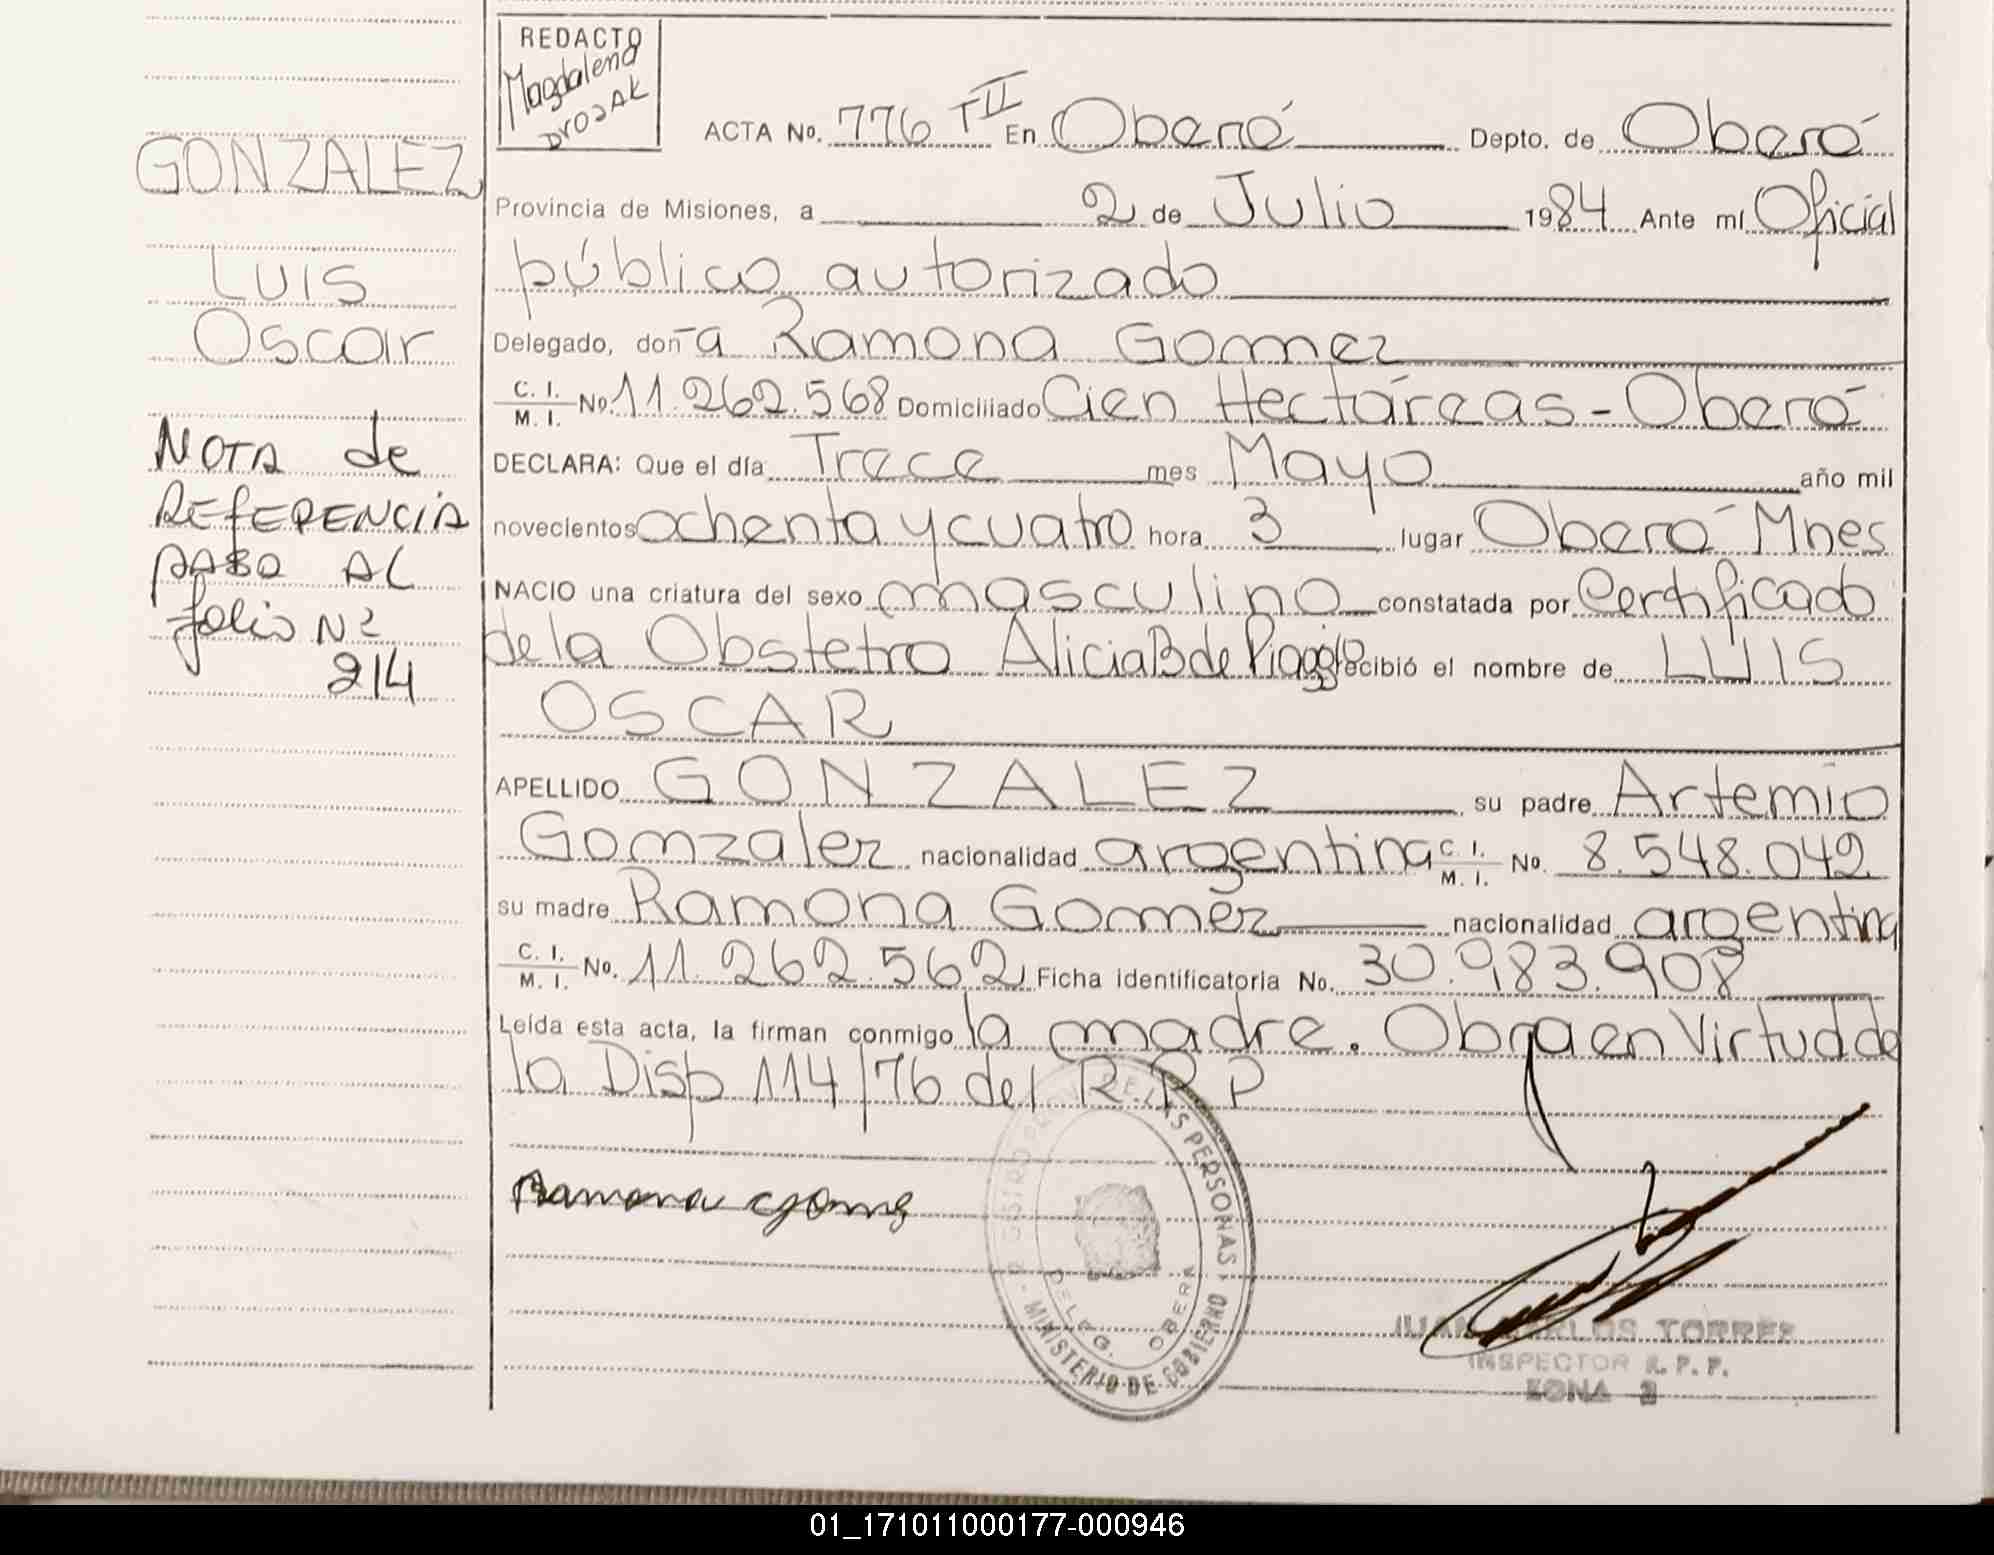 REDACTO
Magdalena
DroJAK
ACTA No. 776 TII En Oberá Depto. de Oberá
Provincia de Misiones, a 2 de Julio 1984 Ante mí Oficial
público autorizado
Delegado, doña Ramona Gomez
C. I. M. I. No. 11.262.568 Domiciliado Cien Hectáreas - Oberá
DECLARA: Que el día Trece mes Mayo año mil
novecientos ochenta y cuatro hora 3 lugar Oberá Mnes
NACIO una criatura del sexo masculino constatada por Certificado
de la Obstetra Alicia B de Piaggio recibió el nombre de LUIS
OSCAR
APELLIDO GONZALEZ su padre Artemio
Gomzalez nacionalidad argentina C. I. M. I. No. 8.548.042
su madre Ramona Gomez nacionalidad argentina
C. I. M. I. No. 11.262.562 Ficha identificatoria No. 30.983.908
Leída esta acta, la firman conmigo la madre. Obra en Virtud de
la Disp 114/76 del R.P.P
Ramona Gome
GONZALEZ
LUIS
Oscar
NOTA de
REFERENCIA
PASO AL
folio Nº
214
DE LAS PERSONAS
MINISTERIO DE GOBIERNO
DELEG. OBERA
JUAN CARLOS TORRES
INSPECTOR R. P. P.
ZONA 2
01_171011000177-000946